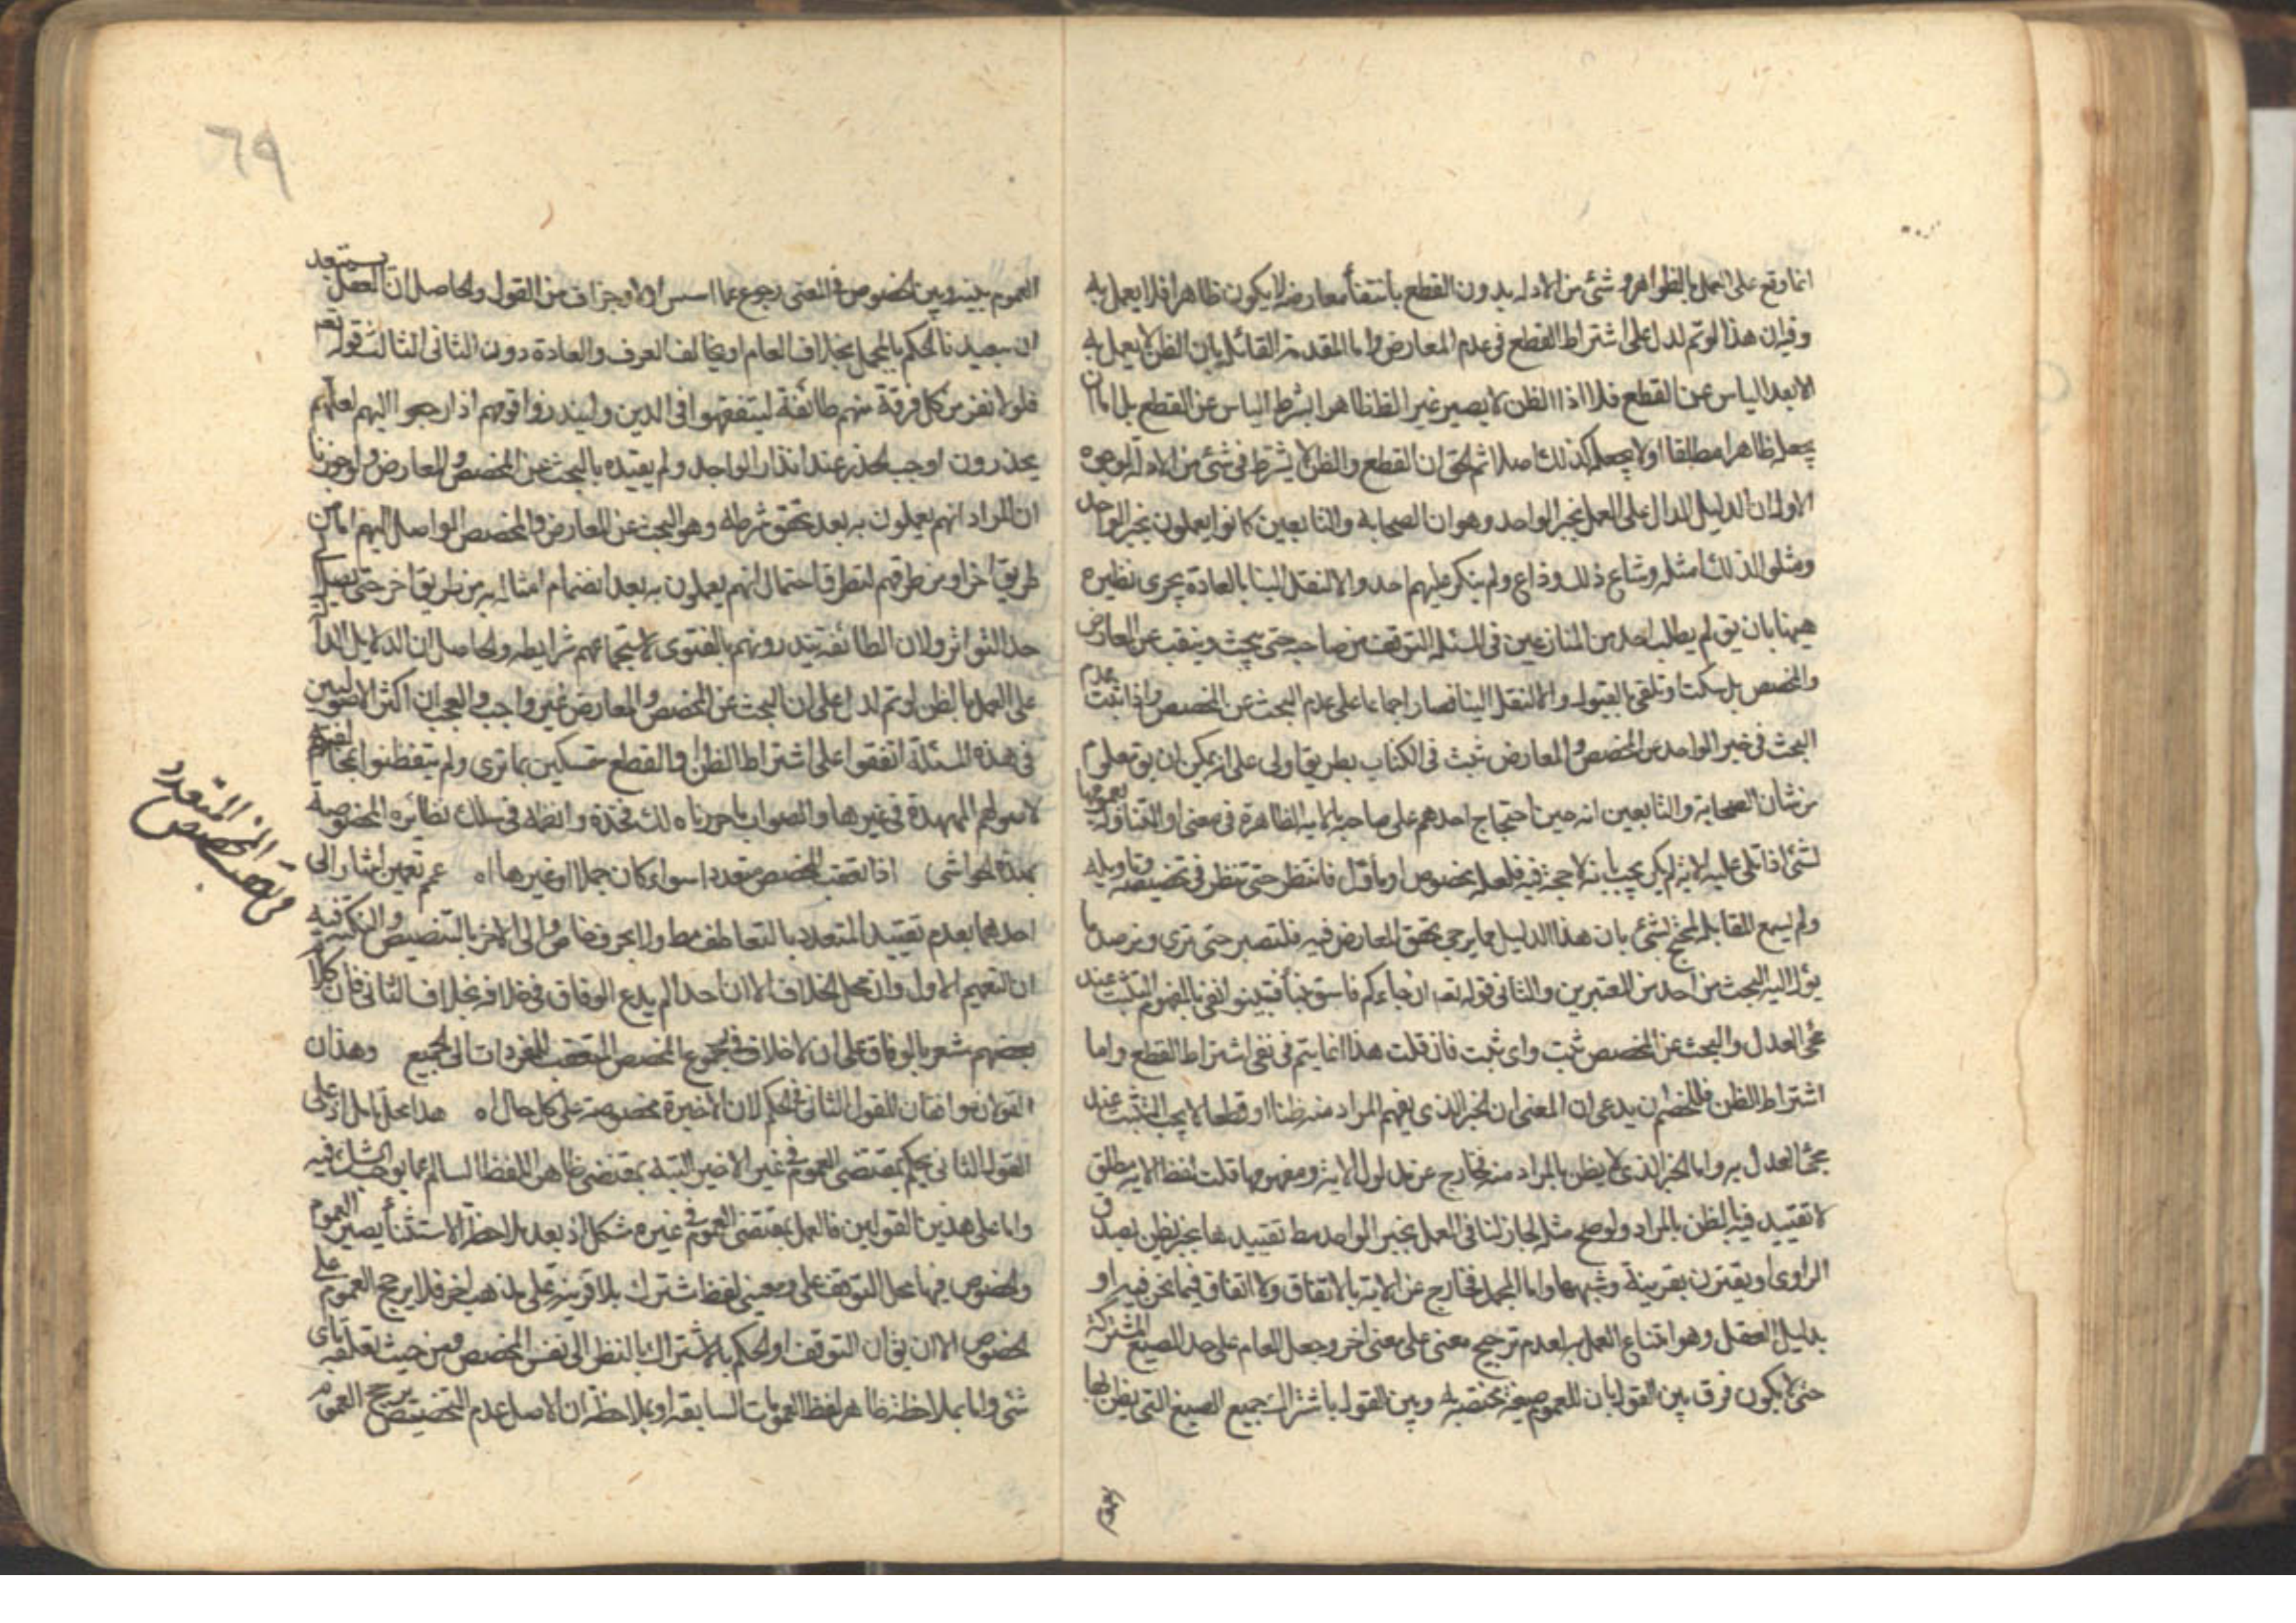 انما وقع على العمل بالظواهر و شئ من الادله بدون القطع بانتفأ معارضه لا يكون ظاهرا فلا يعمل به
وفيه ان هذا لو تم لدل على اشتراط القطع في عدم المعارض واما المقدمة القائلة بان الظن لا يعمل به
الا بعد الياس عن القطع فلا اذا الظن لا يصير غير الظ ظاهرا بشرط الياس عن القطع بل اما ان
يجعله ظاهرا مطلقا او لا يجعله كذلك اصلا ثم الحق ان القطع والظن لا يشترط في شئ من الادلة لوجوه
الاول ان الدليل الدال على العمل بخبر الواحد وهو ان الصحابه والتابعين كانوا يعملون بخبر الواحد
ومثلوا لذلك امثله وشاع ذلك وذاع ولم ينكر عليهم احد والا لنقل الينا بالعادة يجرى نظيره
هيهنا بان يق لم يطلب احد من المتنازعين في المسئله التوقف من صاحبه حتى يبحث وينقب عن المعارض
والمخصص بل سكت او تلقى بالقبول والا لنقل الينا فصار اجماعا على عدم البحث عن المخصص واذا ثبت عدم
البحث في خبر الواحد عن المخصص والمعارض ثبت في الكتاب بطريق اولى على انه يمكن ان يق معلوم
من شأن الصحابة والتابعين انه حين احتجاج احدهم على صاحبه بالايه الظاهرة في معنى او المتناولة بعمومها
لشئ اذا تلى عليه الاية لم يكن يجيب بانه لا حجة فيه فلعله مخصوص او مأول فانتظر حتى ننظر في تخصيصه وتاويله
ولم يسمع المقابله المحتج لشئ بان هذا الدليل مما يرجى تحقق المعارض فيه فلنصبر حتى نرى ونرصد ما
يؤل اليه البحث من احد من المعتبرين والثانى قوله تعه ان جاءكم فاسق بنبأ فتبينوا نفى بالمفهوم التثبت عند
مجئ العدل والبحث عن المخصص تثبت واى تثبت فان قلت هذا انما يتم في نفى اشتراط القطع واما
اشتراط الظن فللخصم ان يدعى ان المعنى ان الخبر الذى يفهم المراد منه ظنا او قطعا لا يجب التثبت عند
مجئ العدل به واما الخبر الذى لا يظن بالمراد منه فخارج عن مدلول الاية ومفهومها قلت لفظ الايه مطلق
لا تقييد فيه بالظن بالمراد ولو صح مثله لجاز لنا في العمل بخبر الواحد مط تقييدها بخبر يظن بصدق
الراوى او يقترن بقرينة وشبهها واما المجمل فخارج عن الاية بالاتفاق ولا اتفاق فيما نحن فيه او
بدليل العقل وهو امتناع العمل به لعدم ترجيح معنى على معنى اخر وجعل العام على حد الصيغ المشتركة
حتى لا يكون فرق بين القول بان للعموم صيغة مختصه به وبين القول باشتراك جميع الصيغ التى يظن بها
٦٩
العموم بينه وبين الخصوص في المعنى رجوع عما اسس اولا وجزاف من القول والحاصل ان العقل يستبعد
ان تعبيدنا الحكم بالمجمل بخلاف العام او يخالف العرف والعادة دون الثانى الثالث قوله تعه
فلولا نفر من كل فرقة منهم طائفة ليتفقهوا في الدين ولينذروا قومهم اذا رجعوا اليهم لعلهم
يحذرون اوجب الحذر عند انذار الواحد ولم يقيده بالبحث عن المخصص والمعارض ولو جوزنا
ان المراد انهم يعملون به بعد تحقق شرطه وهو البحث عن المعارض والمخصص الواصل اليهم اما من
طريق اخر او من طرقهم لتطرق احتمال انهم يعملون به بعد انضمام امثاله به من طريق اخر حتى يصل
حد التواتر ولان الطائفة ينذرونهم بالفتوى لاستجماعهم شرايطه والحاصل ان الدلايل الدالة
على العمل بالظن لو تم لدل على ان البحث عن المخصص والمعارض غير واجب والعجب ان اكثر الاصوليين
في هذه المسئلة اتفقوا على اشتراط الظن والقطع متمسكين بما ترى ولم يتفطنوا بمخالفتهم
لاصولهم الممهدة في غيرها والصواب ما حررناه لك فخذه وانظمه في سلك نظائره المخصوصة
بهذه الحواشى اذا تعقب المخصص متعددا سواء كان جملا او غيرها اه عمم تعميمين اشار الى
احدهما بعدم تقييد المتعدد بالتعاطف مط ولا بحرف خاص والى الاخر بالتنصيص والنكتة فيه
ان التعميم الاول وان محل الخلاف الا ان احدا لم يدع الوفاق في خلافه بخلاف الثانى فان كلام
بعضهم مشعر بالوفاق على ان لا خلاف في رجوع المخصص المتعقب للمفردات الى الجميع وهذان
القولان موافقان للقول الثانى في الحكم لان الاخيرة مخصوصة على كل حال اه هذا محل تامل اذ على
القول الثانى يحكم بمقتضى العموم في غير الاخير البتة بمقتضى ظاهر اللفظ السالم عما يوجب الشك فيه
واما على هذين القولين فالعمل بمقتضى العموم في غيره مشكل اذ بعد ملاحظة الاستثنأ يصير العموم
والخصوص فيها محل التوقف على ومعنيى لفظ اشتراك بلا قرينة على مذهب اخر فلا يرجح العموم على
الخصوص الا ان يق ان التوقف او الحكم بالاشتراك بالنظر الى نفس المخصص ومن حيث تعلقه باى
شئ واما بملاحظة ظاهر لفظ العمومات السابقه او بملاحظة ان الاصل عدم التخصيص يرجح العموم
في تعقب المخصص المتعدد